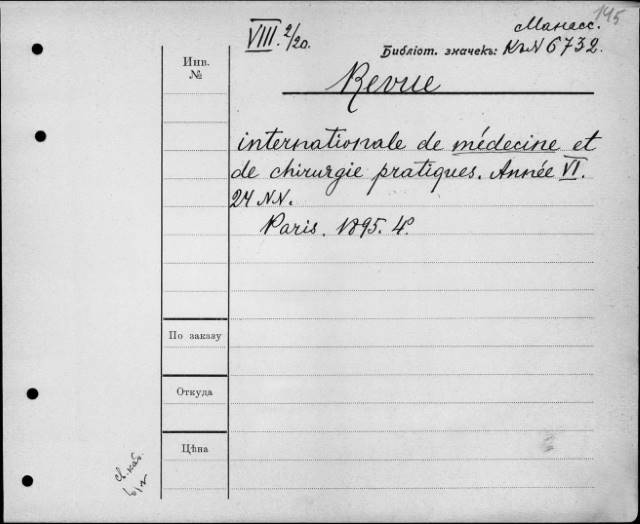 145
VIII. 2/20.
Манасс.
Библіот. значекъ: КъN 6732.
Инв.
№
Revue
internationale de médecine et
de chirurgie pratiques. Année VI.
24 NN.
Paris. 1895. 4°.
По заказу
Откуда
Цѣна